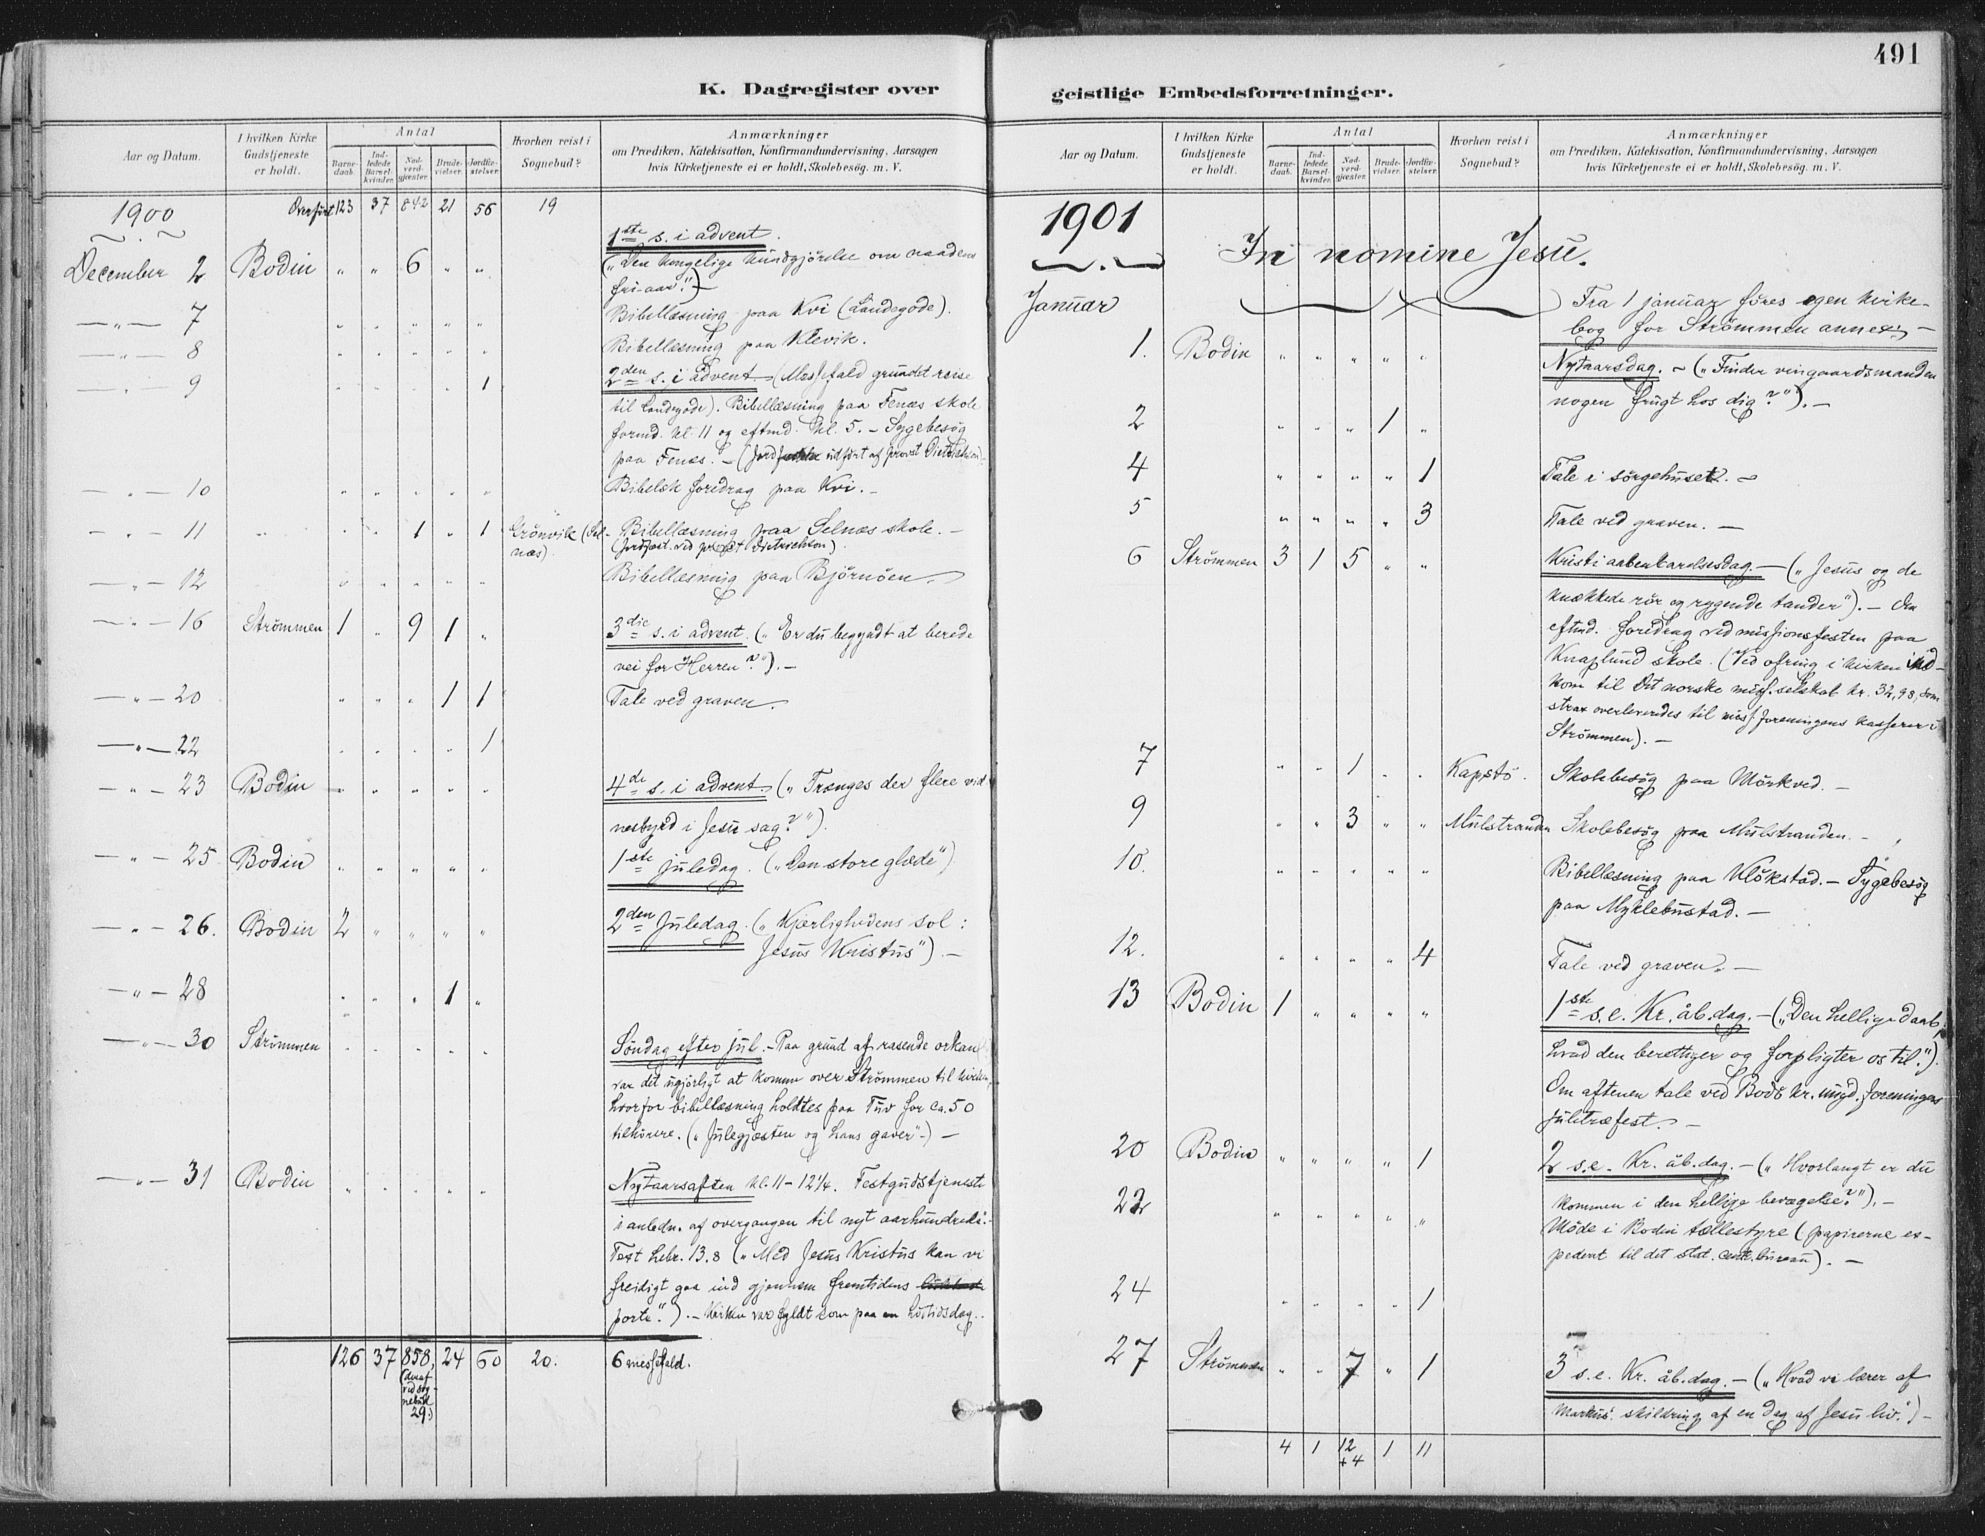 491
K. Dagregister over
Aar og Datum.
I hvilken Kirke
Gudstjeneste
er holdt.
Antal
Barne-
daab.
Ind-
ledede
Barsel-
kvinder.
Nad-
verd-
gjæster.
Brude-
vielser.
Jordfæ-
stelser.
Hvorhen reist i
Sognebud?
Anmærkninger
om Prædiken, Katekisation, Konfirmandundervisning, Aarsagen
hvis Kirketjeneste ei er holdt, Skolebesøg. m. V.
1900 Overført 123 37 842 21 56 19
1ste s. i advent.
December 2 Bodin " " 6 " " („Den kongelige kundgjørelse om naadens
fri-aar.")
—"— 7 " " " " " Bibellæsning paa Kvi (Landegode).
—"— 8 " " " " " Bibellæsning paa Klevik.
" 9 " " " " 1 2den s. i advent. (Messefald grundet reise
til Landegode). Bibellæsning paa Fenæs skole
formd. kl. 11 og eftmd. kl. 5. – Sygebesøg
paa Fenæs. – (Jordfæstelse udført af provst Dietrichson).
—"— 10 " " " " " Bibelsk foredrag paa Kvi. –
—"— 11 " " 1 " 1 Grønvik (Sel- Bibellæsning paa Selnæs skole. –
næs). (Jordfæst. ved provst Dietrichson).
—"— 12 " " " " " Bibellæsning paa Bjørnøen.
—"— 16 Strømmen 1 " 9 1 " 3die s. i advent. („Er du begyndt at berede
vei for Herren?"). –
—"— 20 " " " 1 1 Tale ved graven.
—"— 22 " " " " 1
—"— 23 Bodin " " " " " 4de s. i advent. („Trænges der flere vid
nesbyrd i Jesu sag?").
—"— 25 Bodin " " " " " 1ste juledag. („Den store glæde")
—"— 26. Bodin 2 " " " " 2den Juledag. („Kjærlighedens sol:
Jesus Kristus"). –
—"— 28 " " " 1 "
—"— 30 Strømmen " " " " " Søndag efter jul. – Paa grund af rasende orkan
var det ugjørligt at komme over Strømmen til kirken,
hvorfor bibellæsning holdtes paa Tuv for ca. 50
tilhørere. („Julegjæsten og hans gaver".) –
—"— 31 Bodin " " " " " Nytaarsaften kl. 11 – 12¼. Festgudstjeneste
i anledn. af overgangen til nyt aarhundrede. –
Text Hebr. 13.8 („Med Jesus Kristus kan vi
freidigt gaa ind gjennem fremtidens
porte."). – Kirken var fyldt som paa en høitidsdag.
126 37 858, 24 60 20. 6 messefald.
(deraf
ved sog-
nebud
29.)
geistlige Embedsforretninger.
Aar og Datum.
I hvilken Kirke
Gudstjeneste
er holdt.
Antal
Barne-
daab.
Ind-
ledede
Barsel-
kvinder.
Nad-
verd-
gjæster.
Brude-
vielser.
Jordfæ-
stelser.
Hvorhen reist i
Sognebud?
Anmærkninger
om Prædiken, Katekisation, Konfirmandundervisning, Aarsagen
hvis Kirketjeneste ei er holdt, Skolebesøg. m. V.
1901
In nomine Jesu.
Januar Fra 1 januar føres egen kirke-
bog for Strømmen annex. –
1. Bodin " " " " " Nytaarsdag. – („Finder vingaardsmanden
nogen frugt hos dig?"). –
2 " " " 1 "
4 " " " " 1 Tale i sørgehuset. –
5 " " " " 3 Tale ved graven. –
6 Strømmen 3 1 5 " " Kristi aabenbarelsesdag. – („Jesus og de
knækkede rør og rygende tander"). – Om
eftmd. foredrag ved missionsfesten paa
Knaplund skole. (Ved ofring i kirken ind-
kom til Det norske miss. selskab kr. 32,98, som
strax overleveredes til miss. foreningens kasserer i
Strømmen). –
7 " " 1 " " Kapstø. Skolebesøg paa Mörkved. –
9 " " 3 " " Mulstranden Skolebesøg paa Mulstranden. –
10. " " " " " Bibellæsning paa Klökstad. – Sygebesøg
paa Myklebustad. –
12. " " " " 4 Tale ved graven. –
13 Bodin 1 " " " " 1ste s. e. Kr. åb. dag. – („Den hellige daab,
hvad den berettiger og forpligter os til.").
Om aftenen tale ved Bodø kr. ungd. foreningens
juletræfest. –
20 Bodin " " " " 1 2 s. e. Kr. åb. dag. – („Hvorlangt er du
kommen i den hellige bevægelse?"). –
22 " " " " " Møde i Bodin tællestyre (papirerne ex-
pedert til det stat. cent. bureau). –
24 " " " " 1
27 Strømmen " " 7 " 1 3 s. e. Kr. åb. dag. – („Hvad vi lærer af
Markus' skildring af en dag af Jesu liv.") –
4 1 12 1 11
+4